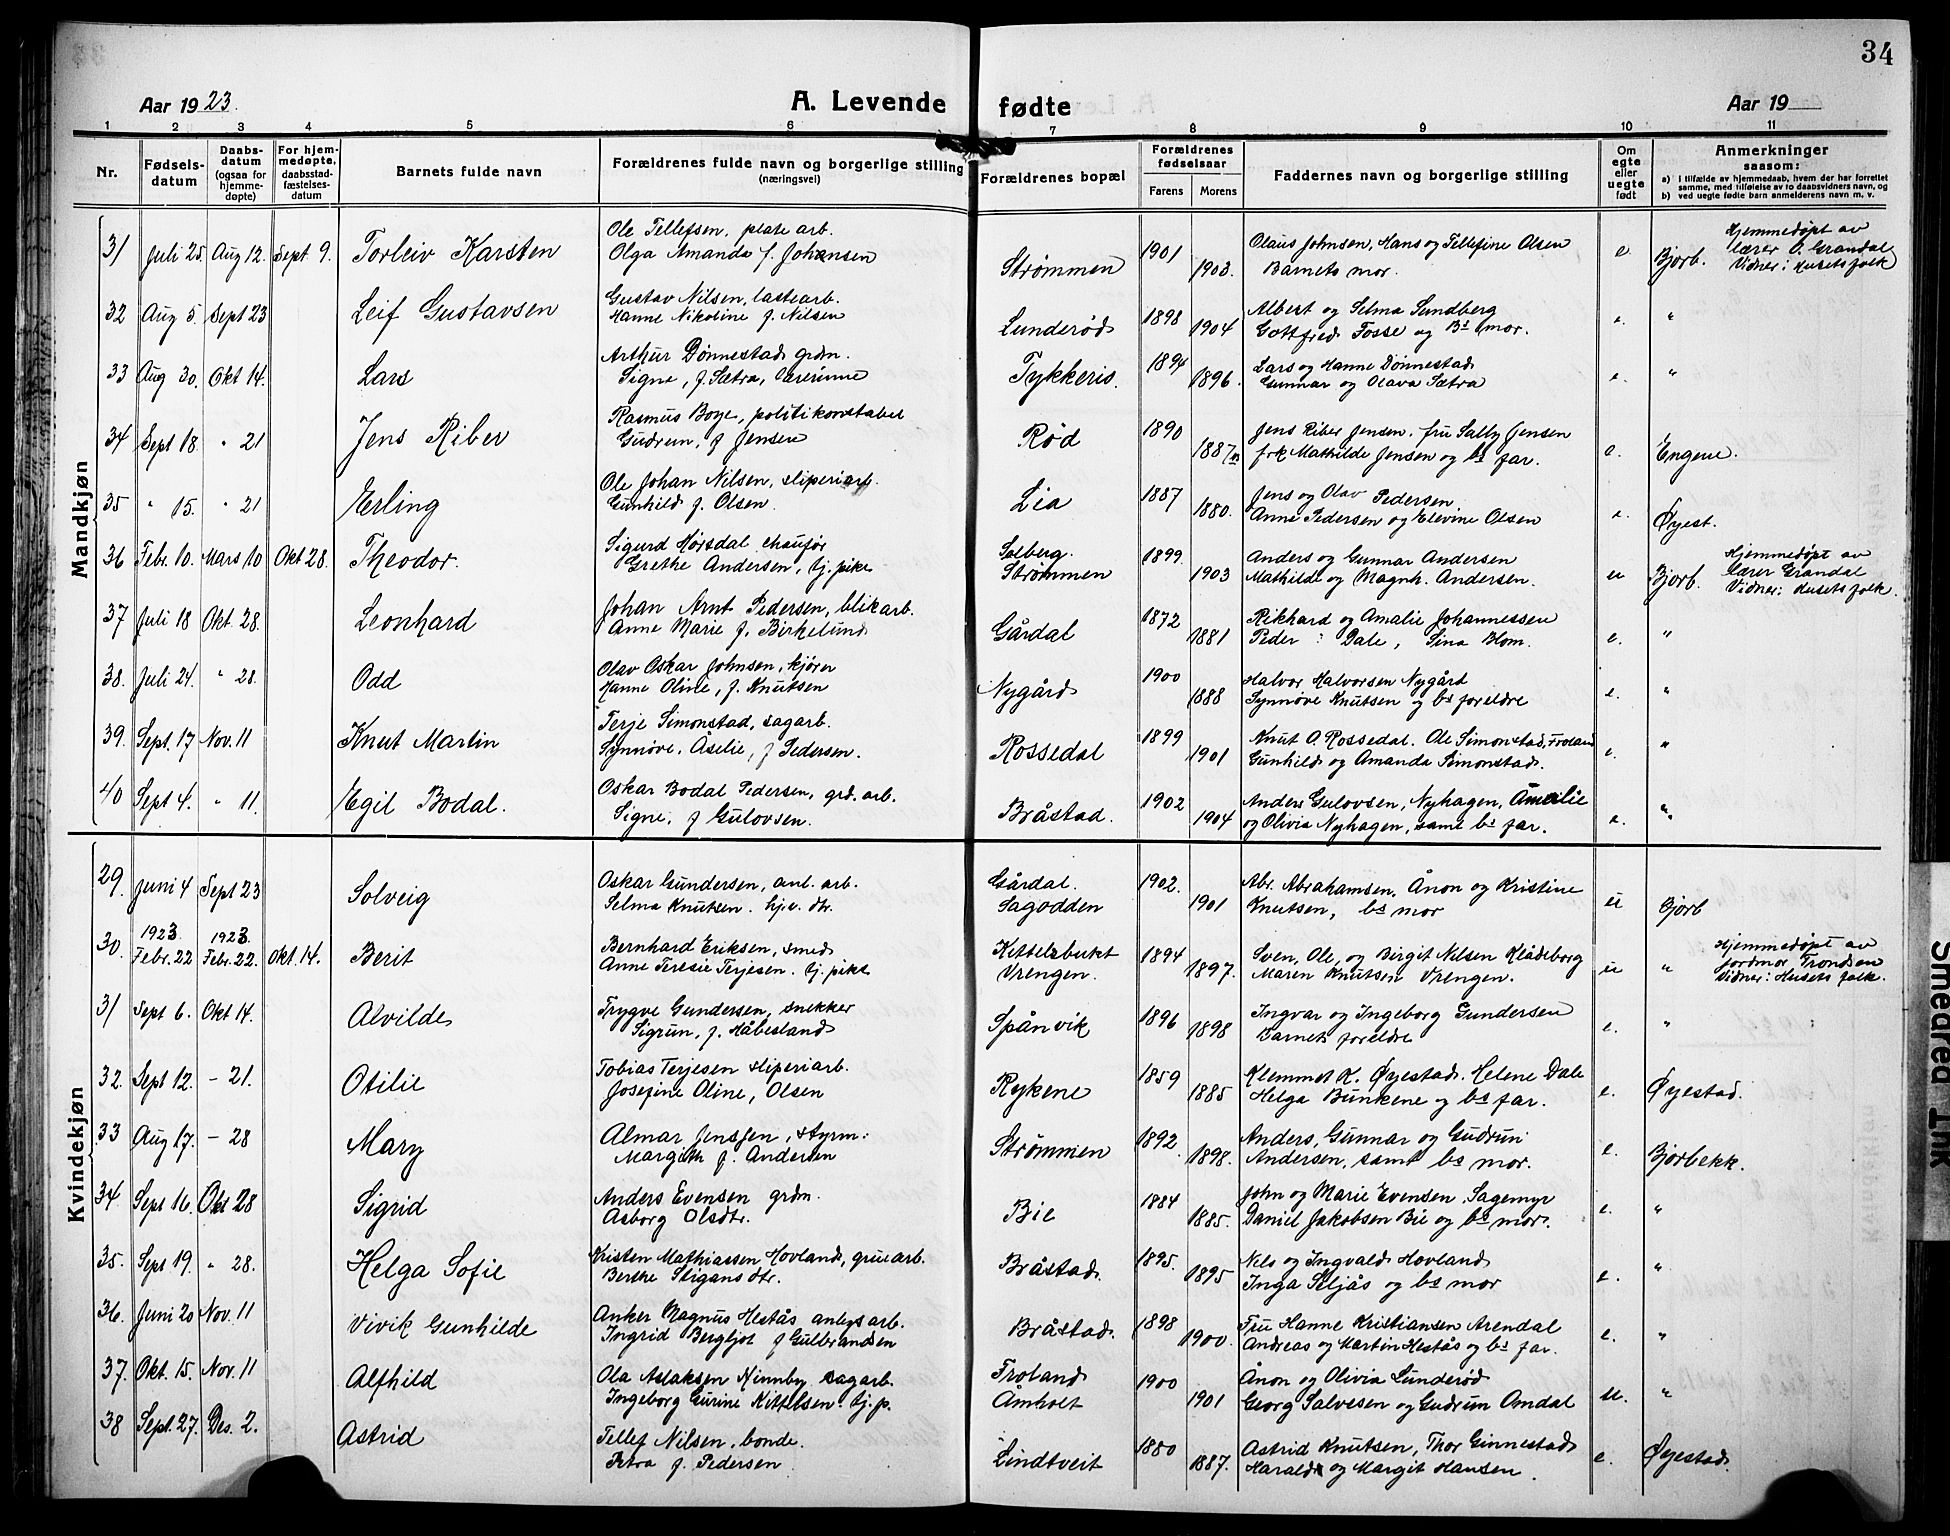 34
Aar 1923.
A. Levende fødte
Aar 19
1 2 3 4 5 6 7 8 9 10 11
Nr.
Fødsels-
datum
Daabs-
datum
(ogsaa for
hjemme-
døpte)
For hjem-
medøpte,
daabsstad-
fæstelses-
datum
Barnets fulde navn
Forældrenes fulde navn og borgerlige stilling
(næringsvei)
Forældrenes bopæl
Forældrenes
fødselsaar
Farens Morens
Faddernes navn og borgerlige stilling
Om
egte
eller
uegte
født
Anmerkninger
saasom:
a) I tilfælde av hjemmedaab, hvem der har forrettet
samme, med tilføielse av to daabsvidners navn, og
b) ved uegte fødte barn anmelderens navn m. v.
Mandkjøn
31 Juli 25. Aug 12. Sept 9. Torleiv Karsten
Ole Tellefsen, plate arb.
Olga Amanda f. Johansen
Strømmen 1901 1903.
Olaus Johnsen, Hans og Tellefine Olsen
Barnets mor.
e Bjorb.
Hjemmedøpt av
lærer O. Grandal
Vidner: Husets folk
32 Aug 5. Sept 23 Leif Gustavsen
Gustav Nilsen, lastearb.
Hanne Nikoline f. Nilsen
Lunderød 1898 1904
Albert og Selma Sundberg
Gottfred Fosse og Bs mor.
e. "
33 Aug 30. Okt 14. Lars
Arthur Dønnestad grdm.
Signe, f. Sætra, lærerinne
Tykkeris. 1894 1896.
Lars og Hanne Dønnestad
Gunnar og Olava Sætra
e. "
34 Sept 18. " 21 Jens Riber
Rasmus Boye, politikonstabel
Gudrun, f Jensen
Rød 1890 1887
Jens Riber Jensen. fru Sally Jensen
frk Mathilde Jensen og bs far.
e. Engene.
35 " 15. " 21 Erling
Ole Johan Nilsen, sliperiarb.
Gunhild f. Olsen
Lia 1887 1880.
Jens og Olav Pedersen
Anne Pedersen og Elevine Olsen
e. Øyest.
36 Febr. 10. Mars 10 Okt 28. Theodor.
Sigurd Mørsdal chauför
Grethe Andersen, tj. pike
Solberg.
Strømmen 1899. 1903
Anders og Gunnar Andersen
Mathilde og Magnh. Andersen.
u Bjorb.
Hjemmedøpt av
lærer Grandal
Vidner: Husets folk.
37 Juli 18 Okt. 28. Leonhard
Johan Arnt Pedersen, blikarb.
Anne Marie f. Birkelund
Gårdal 1872 1881
Rikhard og Amalie Johannessen
Peder : Dale, Sina Blom.
e. "
38. Juli 24. " 28. Odd
Olav Oskar Johnsen, kjører
Hanne Oline, f. Knutsen
Nygård 1900 1888
Halvor Halvorsen Nygård
Synnøve Knutsen og bs foreldre
e. "
39. Sept. 17 Nov. 11 Knut Martin
Terje Simonstad, sagarb.
Synnøve. Åselie, f Pedersen.
Rossedal 1899 1901
Knut O. Rossedal. Ole Simonstad, Froland
Gunhild og Amanda Simonstad.
e. "
40 Sept 4. " 11. Egil Bodal.
Oskar Bodal Pedersen, grd. arb.
Signe, f Gulovsen.
Bråstad. 1902 1904
Anders Gulovsen, Nyhagen,
og Olivia Nyhagen, samt bs far.
e. "
Kvindekjøn
29. Juni 4 Sept 23 Solveig
Oskar Gundersen, anl. arb.
Selma Knutsen. hjv. dtr.
Gårdal.
Sagodden 1902. 1901
Abr. Abrahamsen. Ånon og Kristine
Knutsen, bs mor
u Bjorb
30. 1923. Febr. 22 1923. Febr. 22. Okt. 14. Berit
Bernhard Eriksen, smed
Anne Teresie Terjesen. tj. pike
Kittelsbukt
Vrengen. 1894 1897.
Sven, Ole, og Birgit Nilsen Klådeborg
Maren Knutsen Vrengen.
u "
Hjemmedøpt av
jordmor Trondsen
Vidner: Husets folk.
31 Sept 6. Okt 14. Alvilde
Trygve Gundersen, snekker
Sigrun, f. Håbesland
Spånvik 1896 1898
Ingvar og Ingeborg Gundersen
Barnets foreldre
e. "
32. Sept 12. - 21. Otilie
Tobias Terjesen sliperiarb.
Josefine Oline, Olsen
Rykene 1859 1885
Klemmet K. Øyestad. Helene Dale
Helga Bunkene og bs far.
e. Øyestad.
33 Aug 17. - 28 Mary
Almar Jenssen, styrm:
Margith f. Andersen
Strømmen 1892. 1898.
Anders, Gunnar og Gudrun
Andersen, samt bs mor.
e. Bjorbekk.
34 Sept 16. Okt 28 Sigrid
Anders Evensen grdm.
Asborg Olsdtr.
Bie 1884 1885.
John og Marie Evensen, Sagemyr
Daniel Jakobsen Bie og bs mor.
e. "
35. Sept 19. " 28. Helga Sofie
Kristen Mathiassen Hovland, gruearb.
Berthe Stigans dtr.
Bråstad. 1895. 1895
Nels og Ingvald Hovland
Inga Seljås og bs mor
e. "
36. Juni 20 Nov. 11 Vivik Gunhilde
Anker Magnus Hestås anlegsarb.
Ingrid Bergljot f Gulbrandsen
Bråstad. 1898 1900.
Fru Hanne Kristiansen Arendal
Andreas og Martin Hestås og bs far.
e. "
37. Okt. 15. Nov. 11 Alfhild
Ola Aslaksen Ninnby sagarb.
Ingeborg Gurine Kittelsen. tj. p.
Froland
Åmholt 1900 1901
Ånon og Olivia Lunderød
Georg Salvesen og Gudrun Omdal
u. "
38 Sept. 27. Des. 2. Astrid
Tellef Nilsen, bonde.
Petra f. Pedersen
Lindtveit 1880 1887.
Astrid Knutsen, Thor Ginnestad
Harald og Margit Hansen.
e. Øyestad.
Smeared Ink